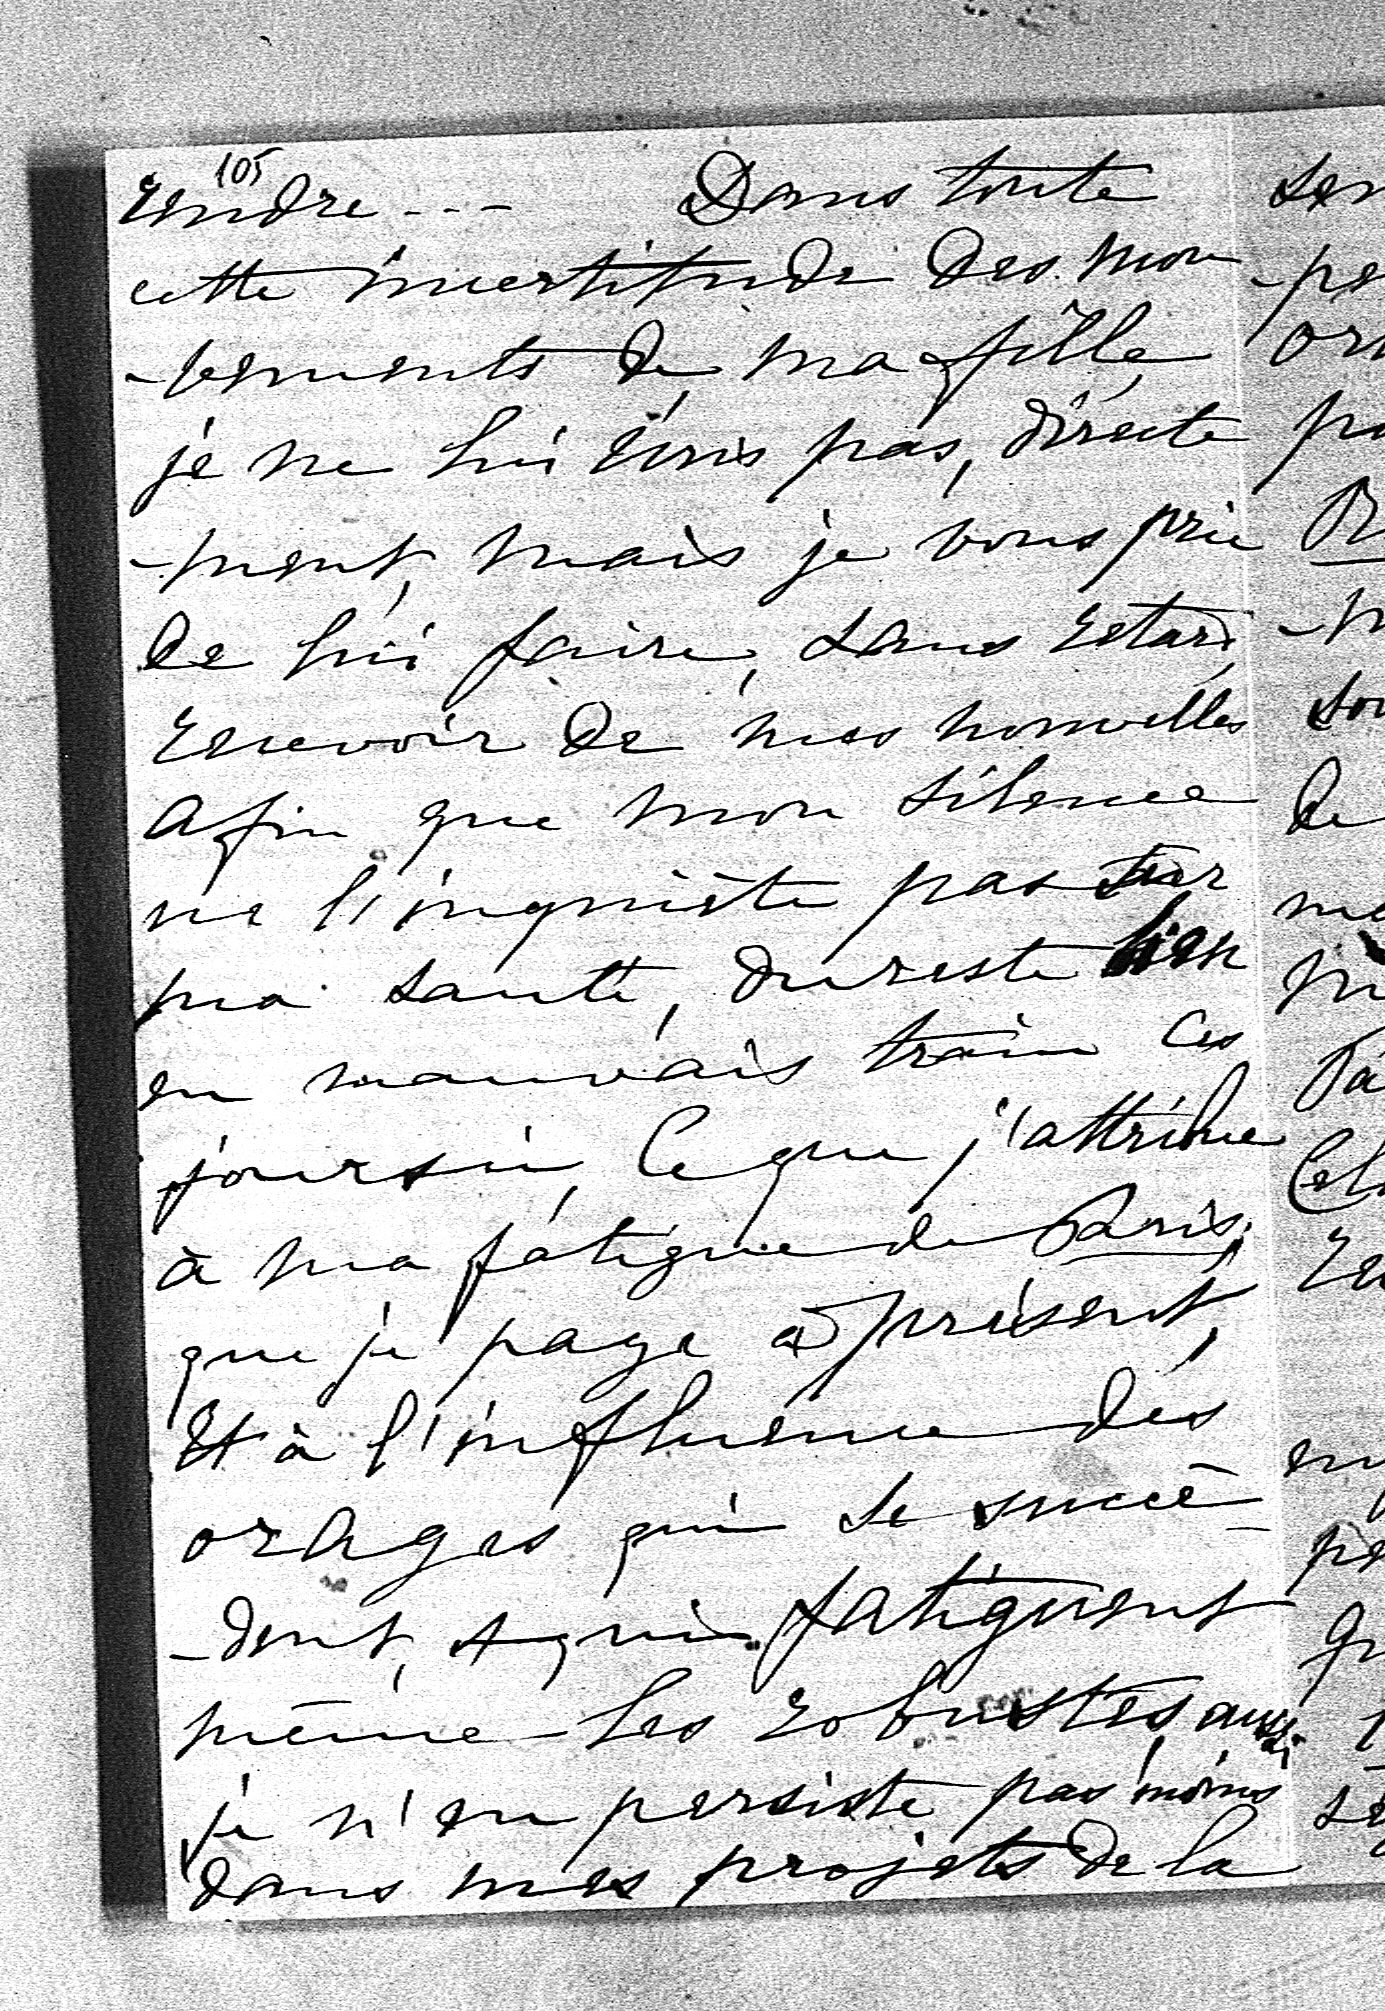 105
rendre --- Dans toute
cette incertitude des mou
-vements de ma fille
je ne lui écris pas, directe
-ment, mais je vous prie
de lui faire, sans retard,
recevoir de mes nouvelles
afin que mon silence
ne l'inquiète pas sur
ma santé, du reste bien
en mauvais train ces
jours ci, ce que j'attribue
à ma fatigue de Paris,
que je paye à présent,
et à l'influence des
orages qui se succè-
-dent, et qui fatiguent
même les robustes, aussi
je n'en persiste pas moins
dans mes projets de la